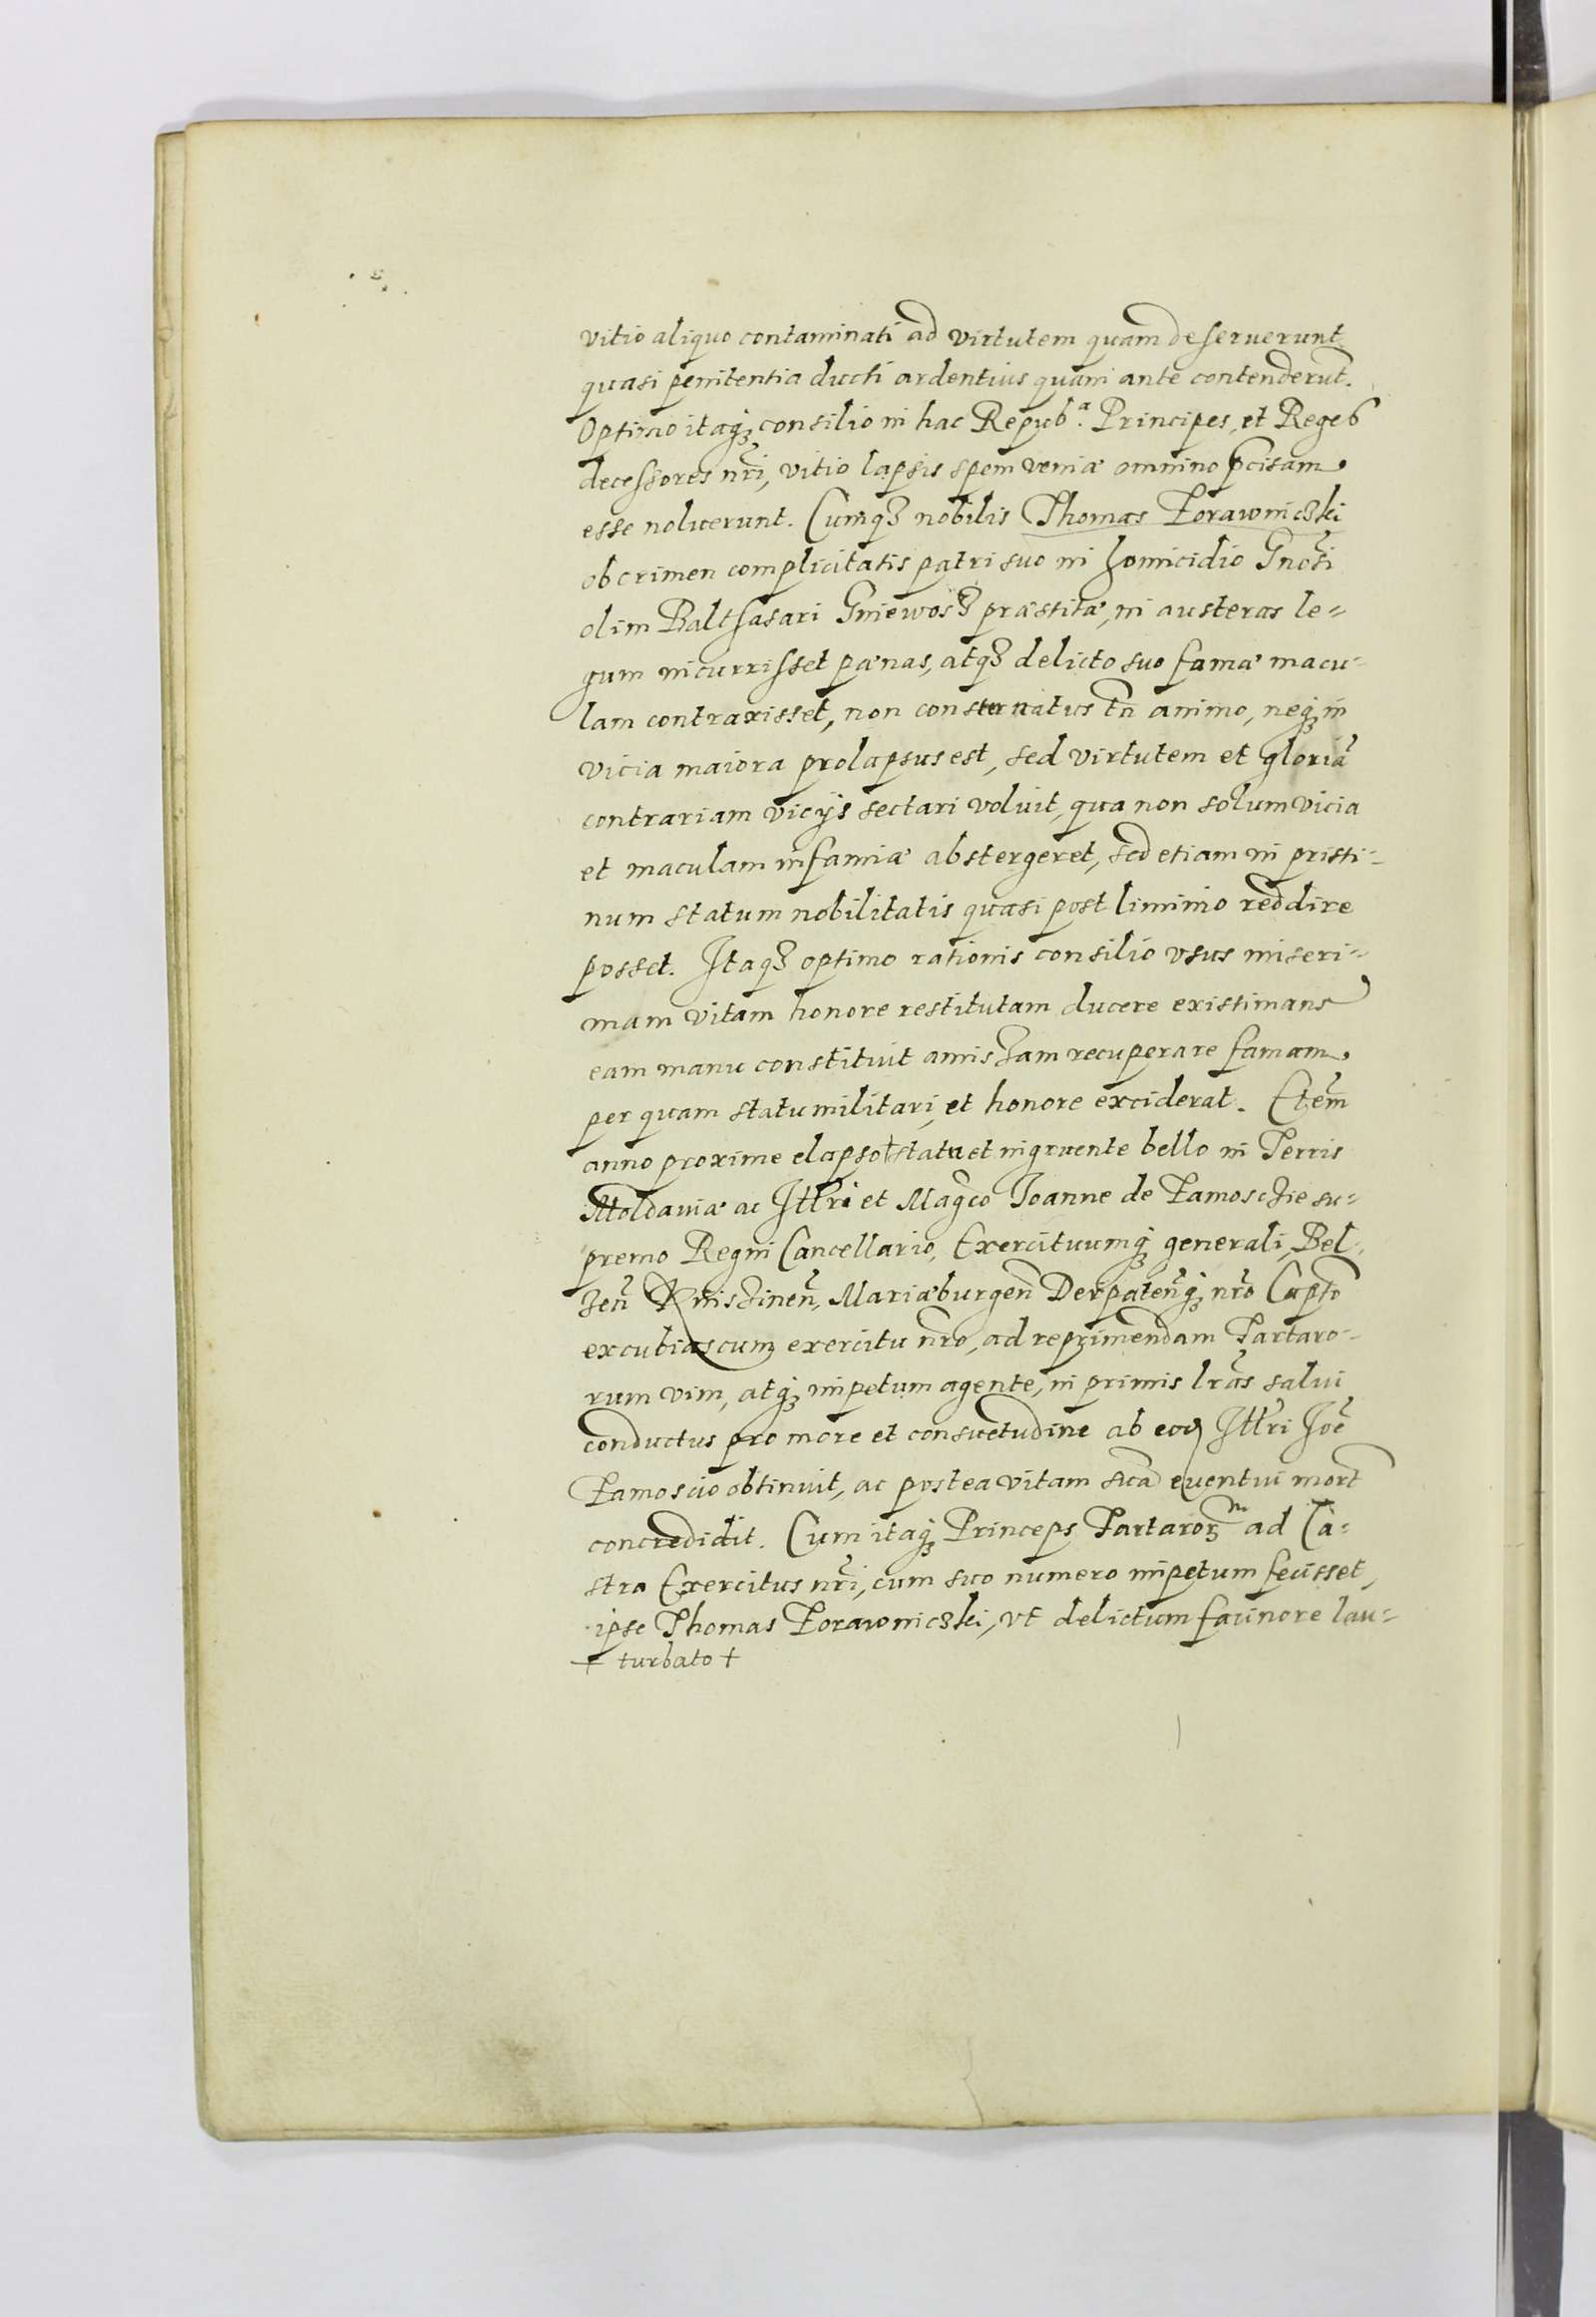 vitio aliquo contaminati ad virtutem quam deseruerunt
quasi penitentia ducti ardentius quam ante contenderūt.
Optimo itaq; consilio in hac Repub.ª Principes, et Reges
decessores nr̄i, vitio lapsis spem veniæ omnino p̄cisam
esse noluerunt. Cumq; nobilis Thomas Zorawniczki
ob crimen complicitatis patri suo in homicidio Gnōsi
olim Balthasari Gniewosz præstitæ, in austeras le-
gum incurrisset pænas, atq; delicto suo famæ macu-
lam contraxisset, non consternatus tn̄ animo, neq; in
vicia maiora prolapsus est, sed virtutem et gloriā
contrariam vicijs sectari voluit, qua non solum vicia
et maculam infamiæ abstergeret, sed etiam in pristi-
num statum nobilitatis quasi post liminio reddire
posset. Itaq; optimo rationis consilio vsus miseri-
mam vitam honore restitutam ducere existimans
eam manu constituit amissam recuperare famam
per quam statu militari, et honore exciderat. Etem̄
anno proxime elapso † statu et ingruente bello in Terris
Moldaviæ ac Illr̄i et Magc̄o Ioanne de Zamoscie su-
premo Regni Cancellario, Exercituumq; generali, Bel-
zen̄ Knisinen̄, Mariæburgen̄ Derpaten̄q; nr̄o Capto
excubias cum exercitu nr̄o, ad reprimendam Tartaro-
rum vim, atq; impetum agente, in primis lr̄as salui
conductus pro more et consuetudine ab eod Illr̄i Joē
Zamoscio obtinuit, ac postea vitam suā eventui mort
concredidit. Cum itaq; Princeps Tartaror̄m ad Ca-
stra Exercitus nr̄i, cum suo numero impetum fecisset,
ipse Thomas Zorawniczki, vt delictum facinore lau-
† turbato †